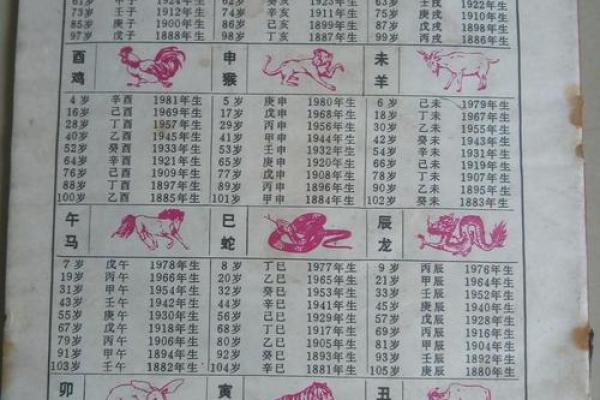 73岁 壬子 1912年生 74岁 辛亥 1911年生 75岁 庚戌 1910年生
85岁 庚子 1900年生 86岁 己亥 1899年生 87岁 戊戌 1898年生
97岁 戊子 1888年生 98岁 丁亥 1887年生 99岁 丙戌 1886年生
酉 申 未
鸡 猴 羊
4岁 辛酉 1981年生 5岁 庚申 1980年生 6岁 己未 1979年生
16岁 己酉 1969年生 17岁 戊申 1968年生 18岁 丁未 1967年生
28岁 丁酉 1957年生 29岁 丙申 1956年生 30岁 乙未 1955年生
40岁 乙酉 1945年生 41岁 甲申 1944年生 42岁 癸未 1943年生
52岁 癸酉 1933年生 53岁 壬申 1932年生 54岁 辛未 1931年生
64岁 辛酉 1921年生 65岁 庚申 1920年生 66岁 己未 1919年生
76岁 己酉 1909年生 77岁 戊申 1908年生 78岁 丁未 1907年生
88岁 丁酉 1897年生 89岁 丙申 1896年生 90岁 乙未 1895年生
100岁 乙酉 1885年生 101岁 甲申 1884年生 102岁 癸未 1883年生
午 巳 辰
马 蛇 龙
7岁 戊午 1978年生 8岁 丁巳 1977年生 9岁 丙辰 1976年生
19岁 丙午 1966年生 20岁 乙巳 1965年生 21岁 甲辰 1964年生
31岁 甲午 1954年生 32岁 癸巳 1953年生 33岁 壬辰 1952年生
43岁 壬午 1942年生 44岁 辛巳 1941年生 45岁 庚辰 1940年生
55岁 庚午 1930年生 56岁 己巳 1929年生 57岁 戊辰 1928年生
67岁 戊午 1918年生 68岁 丁巳 1917年生 69岁 丙辰 1916年生
79岁 丙午 1906年生 80岁 乙巳 1905年生 81岁 甲辰 1904年生
91岁 甲午 1894年生 92岁 癸巳 1893年生 93岁 壬辰 1892年生
103岁 壬午 1882年生 104岁 辛巳 1881年生 105岁 庚辰 1880年生
卯 寅 丑